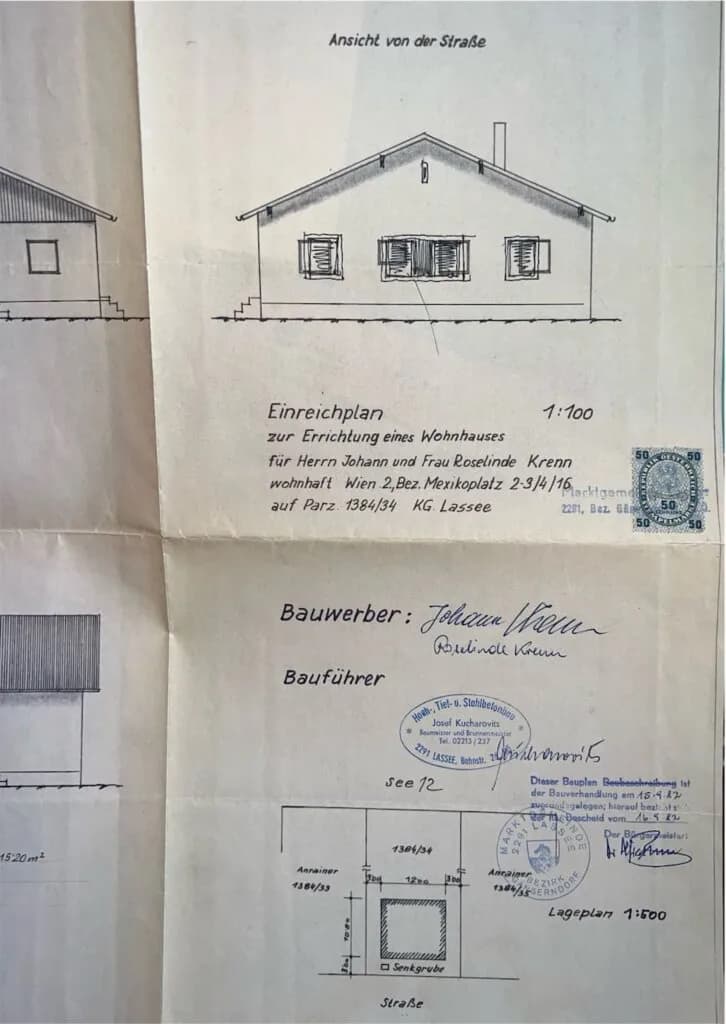 Ansicht von der Straße
Einreichplan 1:100
zur Errichtung eines Wohnhauses
für Herrn Johann und Frau Roselinde Krenn
wohnhaft Wien 2, Bez. Mexikoplatz 2-3/4/16
auf Parz. 1384/34 KG. Lassee
50 50
REPUBLIK OESTERREICH
50
50 50
Marktgeme
2291, Bez. Gän
Bauwerber: Johann Krenn
Roselinde Krenn
Bauführer
Hoch-, Tief- u. Stahlbetonbau
Josef Kucharovits
Baumeister und Brunnenmeister
Tel. 02213 / 237
2291 LASSEE, Bahnstr.
Kucharovits
see 12
Dieser Bauplan Baubeschreibung ist
der Bauverhandlung am 15.9.82
zugrundegelegen; hierauf bezieht s
der Bescheid vom 16.9.82
Der Bürgermeister:
MARKTGEMEINDE
2291 LASSEE
BEZIRK
GÄNSERNDORF
15'20 m²
1384/34
Anrainer
1384/33
300 1200 300
Anrainer
1384/35
Lageplan 1:500
300
Senkgrube
Straße